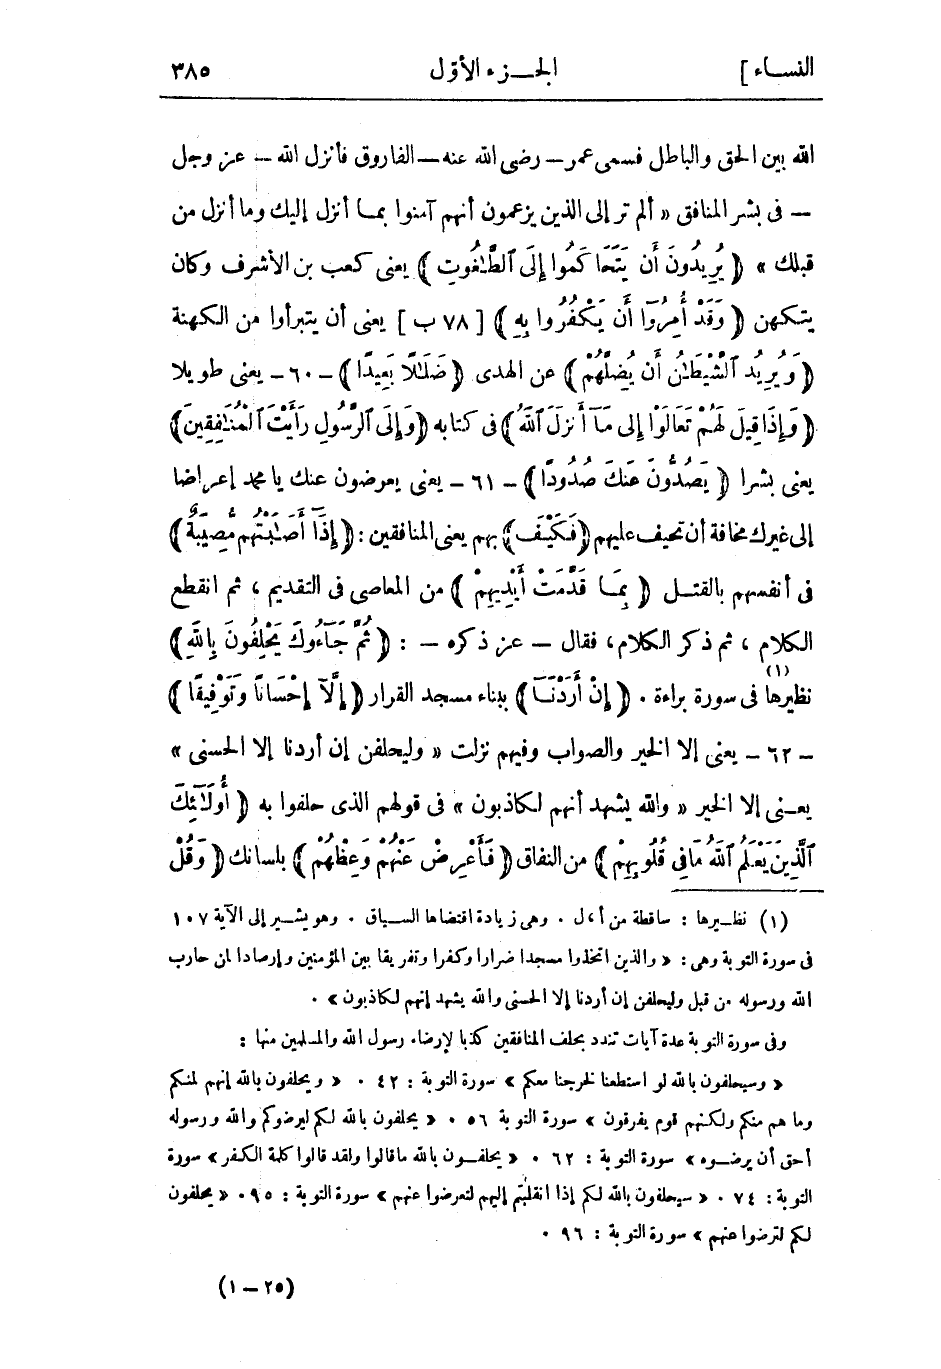 النساء ]
الجـزء الأول
٣٨٥
الله بين الحق والباطل فسمى عمر – رضى الله عنه – الفاروق فأنزل الله – عز وجل
– فى بشر المنافق « ألم تر إلى الذين يزعمون أنهم آمنوا بمـا أنزل إليك وما أنزل من
قبلك » ﴿ يُرِيدُونَ أَن يَتَحَاكَمُوا إِلَى ٱلطَّـٰغُوتِ ﴾ يعنى كعب بن الأشرف وكان
يتكهن ﴿ وَقَدْ أُمِرُوٓا أَن يَكْفُرُوا بِهِ ﴾ [ ٧٨ ب ] يعنى أن يتبرأوا من الكهنة
﴿ وَيُرِيدُ ٱلشَّيْطَـٰنُ أَن يُضِلَّهُمْ ﴾ عن الهدى ﴿ ضَلَـٰلًا بَعِيدًا ﴾ – ٦٠ – يعنى طويلا
﴿ وَإِذَا قِيلَ لَهُمْ تَعَالَوْا إِلَى مَآ أَنزَلَ ٱللَّهُ ﴾ فى كتابه ﴿ وَإِلَى ٱلرَّسُولِ رَأَيْتَ ٱلْمُنَـٰفِقِينَ ﴾
يعنى بشرا ﴿ يَصُدُّونَ عَنكَ صُدُودًا ﴾ – ٦١ – يعنى يعرضون عنك يا محمد إعراضا
إلى غيرك مخافة أن تحيف عليهم ﴿ فَكَيْفَ ﴾ بهم يعنى المنافقين : ﴿ إِذَآ أَصَـٰبَتْهُم مُّصِيبَةٌ ﴾
فى أنفسهم بالقتـل ﴿ بِمَـا قَدَّمَتْ أَيْدِيهِمْ ﴾ من المعاصى فى التقديم ، ثم انقطع
الكلام ، ثم ذكر الكلام ، فقال – عز ذكره – : ﴿ ثُمَّ جَآءُوكَ يَحْلِفُونَ بِٱللَّهِ ﴾
نظيرها (١) فى سورة براءة . ﴿ إِنْ أَرَدْنَـا ﴾ ببناء مسجد القرار ﴿ إِلَّآ إِحْسَانًا وَتَوْفِيقًا ﴾
– ٦٢ – يعنى إلا الخير والصواب وفيهم نزلت « وليحلفن إن أردنا إلا الحسنى »
يعـنى إلا الخير « والله يشهد أنهم لكاذبون » فى قولهم الذى حلفوا به ﴿ أُولَـٰٓئِكَ
ٱلَّذِينَ يَعْلَمُ ٱللَّهُ مَا فِى قُلُوبِهِمْ ﴾ من النفاق ﴿ فَأَعْرِضْ عَنْهُمْ وَعِظْهُمْ ﴾ بلسانك ﴿ وَقُلْ
(١) نظـيرها : ساقطة من أ ، ل . وهى زيادة اقتضاها السـياق . وهو يشـير إلى الآية ١٠٧
فى سورة التوبة وهى : « والذين اتخذوا مسجدا ضرارا وكفرا وتفريقا بين المؤمنين وإرصادا لمن حارب
الله ورسوله من قبل وليحلفن إن أردنا إلا الحسنى والله يشهد إنهم لكاذبون » .
وفى سورة التوبة عدة آيات تندد بحلف المنافقين كذبا لإرضاء رسول الله والمسلمين منها :
« وسيحلفون بالله لو استطعنا لخرجنا معكم » سورة التوبة : ٤٢ . « ويحلفون بالله إنهم لمنكم
وما هم منكم ولكنهم قوم يفرقون » سورة التوبة ٥٦ . « يحلفون بالله لكم ليرضوكم والله ورسوله
أحق أن يرضـوه » سورة التوبة : ٦٢ . « يحلفـون بالله ما قالوا ولقد قالوا كلمة الكفر » سورة
التوبة : ٧٤ . « سيحلفون بالله لكم إذا انقلبتم إليهم لتعرضوا عنهم » سورة التوبة : ٩٥ . « يحلفون
لكم لترضوا عنهم » سورة التوبة : ٩٦ .
(٢٥ – ١)